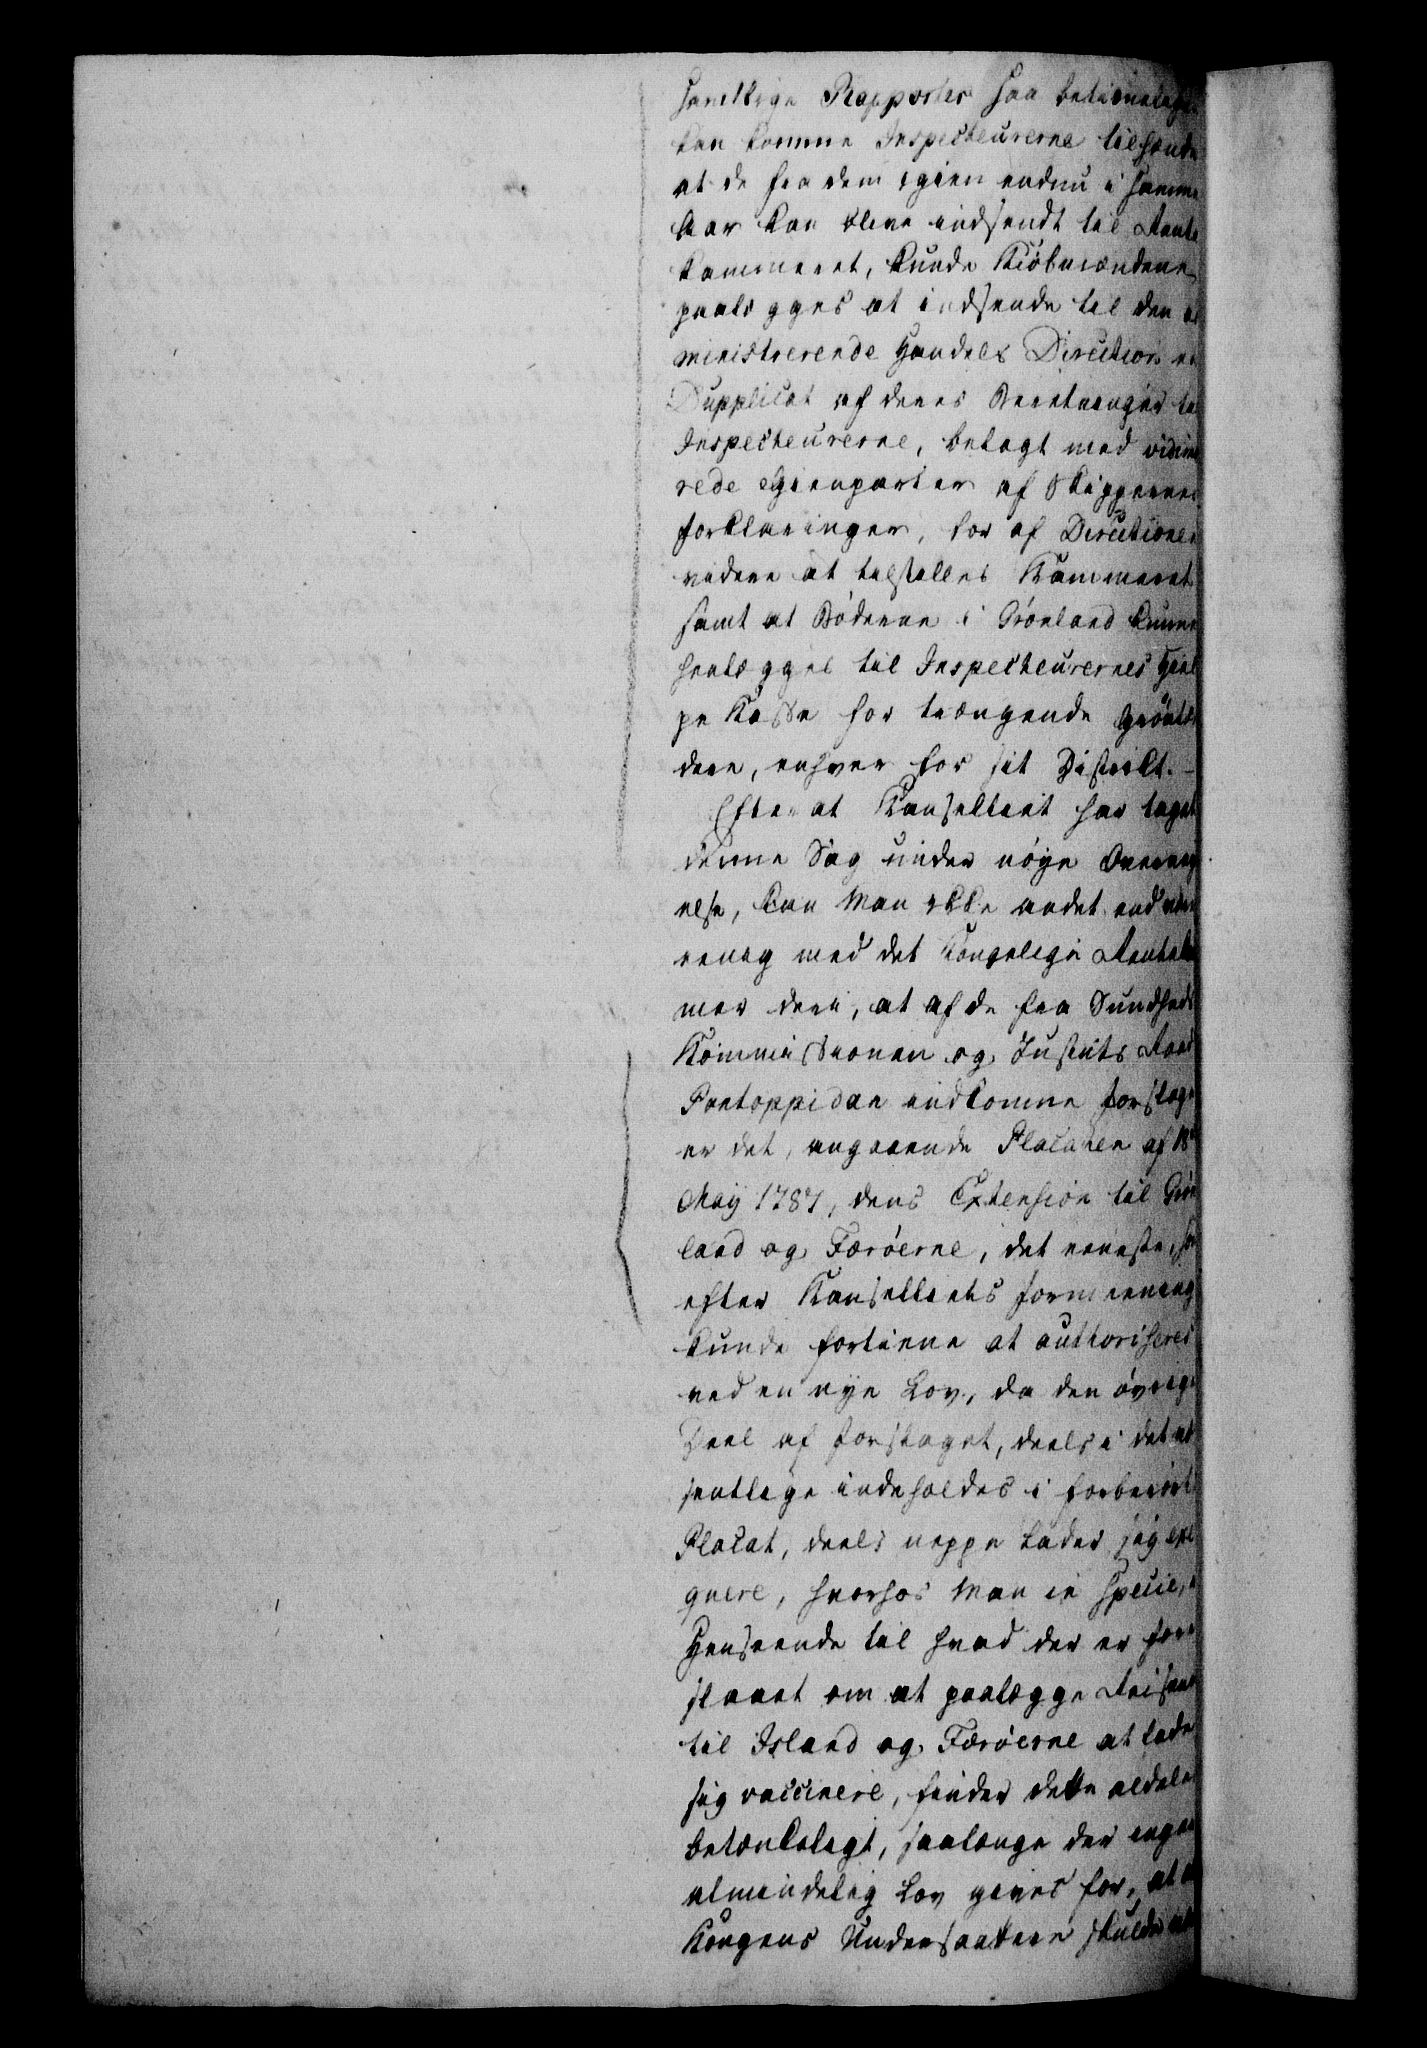 samtlige Rapporter saa betimelige
kan komme Inspecteurerne tilhænde
at de fra dem igien endnu i samme
Aar kan blive indsendt til Rente
Kammeret, kunde Kiøbmændene
paalægges at indsende til den
ministrerende Handels Direction en
Dupplicat af deres Beretninger til
Inspecteurerne, belagt med vidime
rede Gienparter af Skippernes
Forklaringer, for af Directionen
videre at tilstilles Kammeret
samt at Bøderne i Grønland kunne
henlægges til Inspecteurernes Hiel
pe Kasse for trængende Grønlæn
dere, enhver for sit District. –
Efter at Kanselliet har taget
denne Sag under nøye Overvey
else, kan Man ikke andet end være
eenig med det Kongelige Rentekam
mer deri, at af de fra Sundheds
Kommissionen og Justits Raad
Pontoppidan indkomne Forslage
er det, angaaende Placaten af 18de
May 1787, dens Extension til Grøn
land og Færøerne, det eneste, som
efter Kanselliets Formeening
kunde fortiene at authoriseres
ved en nye Lov, da den øvrige
Deel af Forslaget, deels i det væ
sentlige indeholdes i forberørte
Placat, deels neppe lader sig exe
qvere, hvorhos Man in specie, i
Henseende til hvad der er fore
slaaet om at paalægge Reisende
til Island og Færøerne at lade
sig vaccinere, finder dette aldeles
betænkeligt, saalænge der ingen
almindelig Lov gives for, at
Kongens Undersaatter skulde